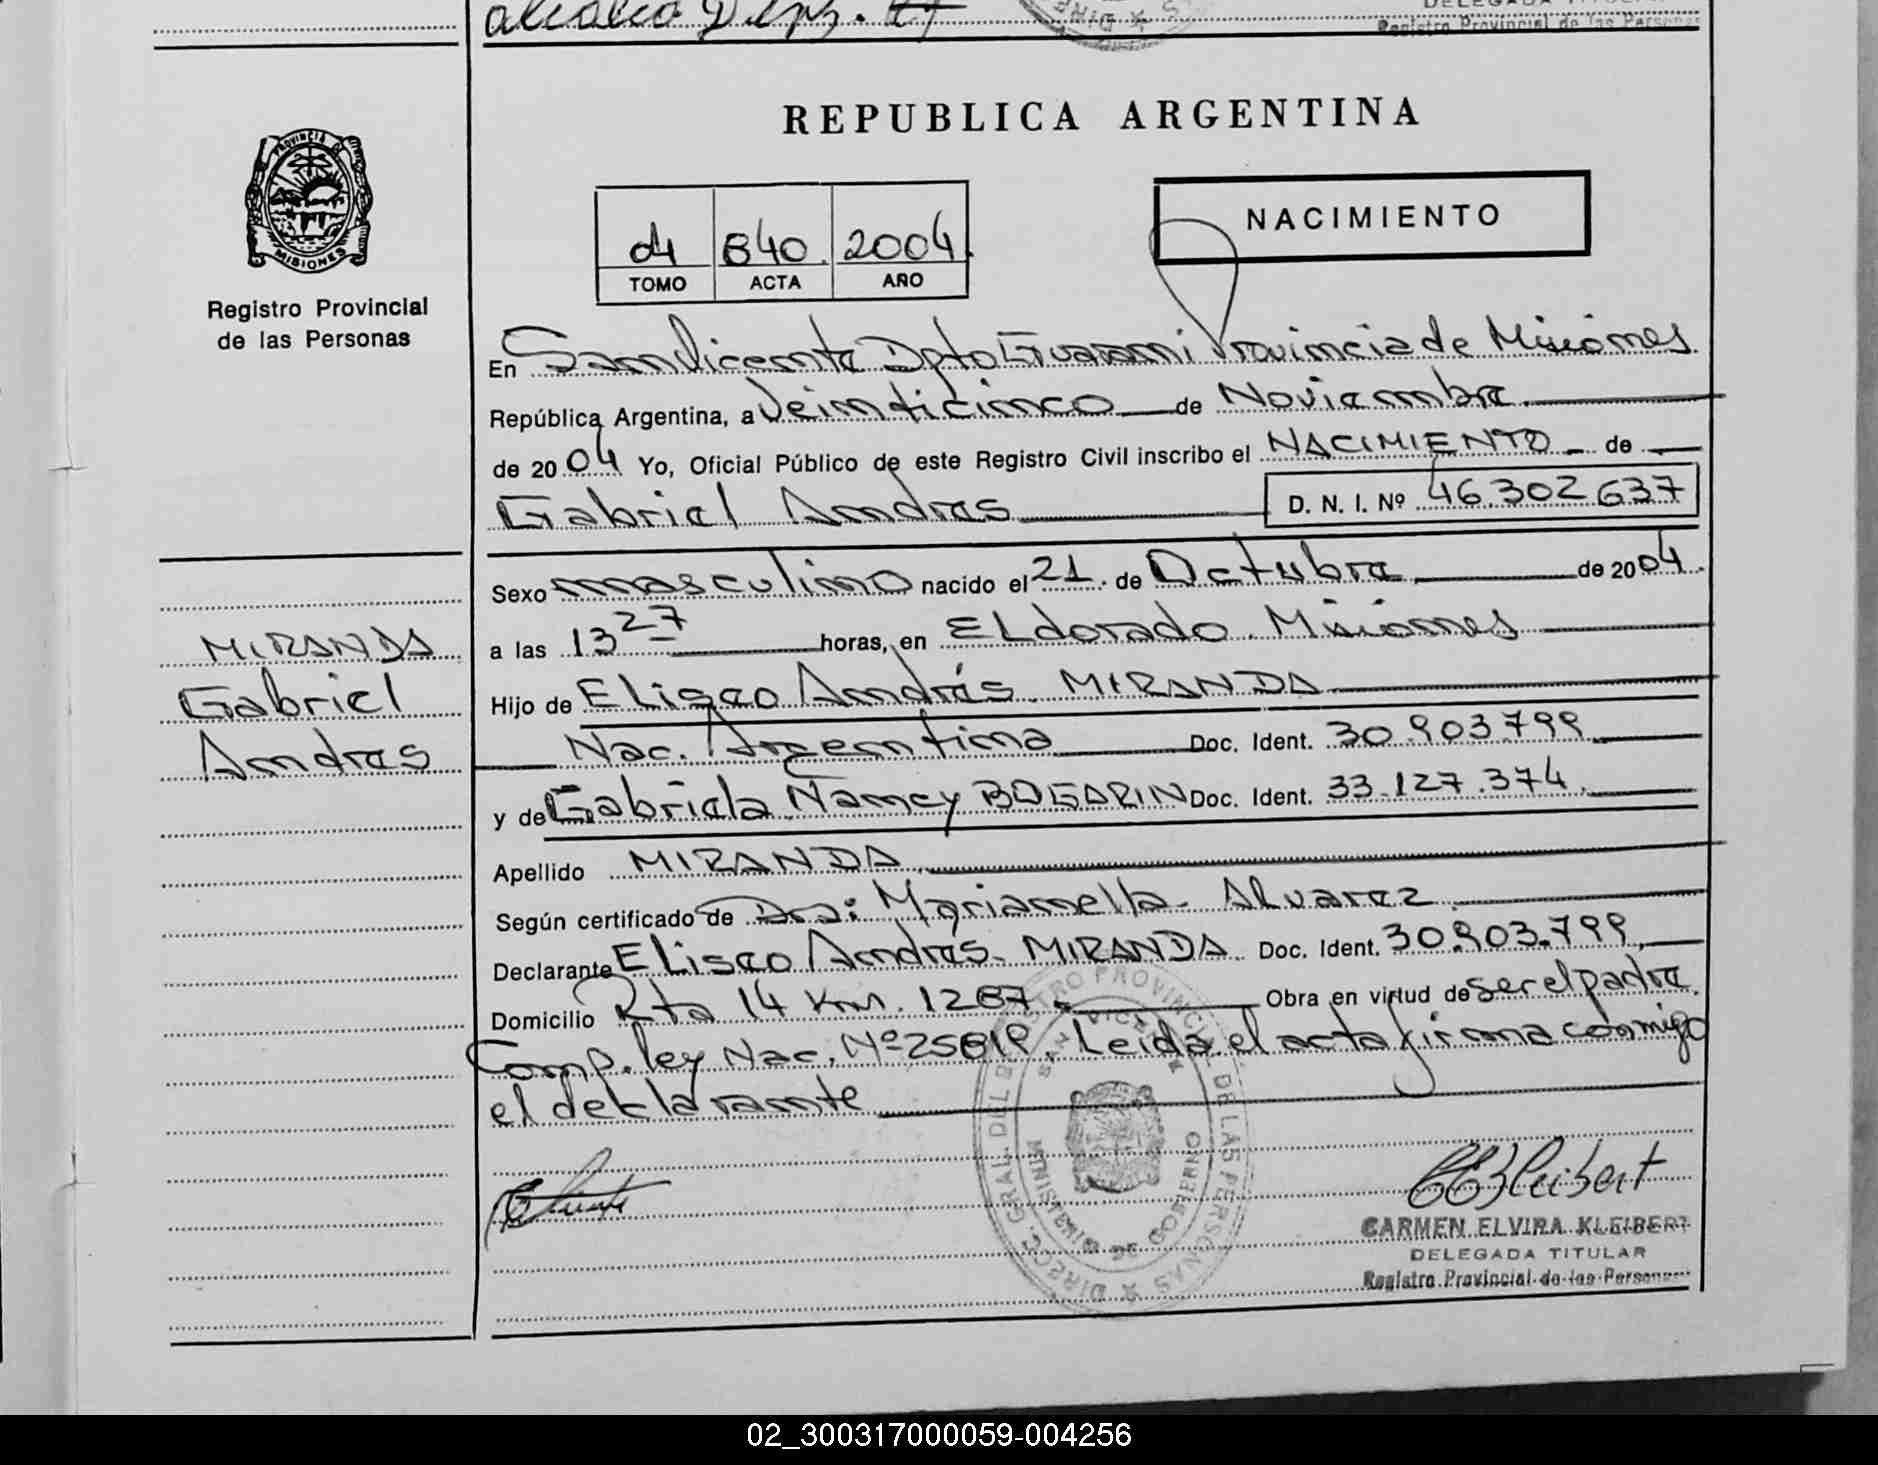 DELEGADA TITULAR
Registro Provincial de las Personas
PROVINCIA DE
MISIONES
Registro Provincial
de las Personas
REPUBLICA ARGENTINA
NACIMIENTO
840 2004
TOMO ACTA AÑO
En San Vicente Dpto Guarani Provincia de Misiones
República Argentina, a Veinticinco de Noviembre
de 2004 Yo, Oficial Público de este Registro Civil inscribo el NACIMIENTO de
Gabriel Andres D. N. I. Nº 46.302.637
Sexo masculino nacido el 21 de Octubre de 2004
a las 13 27 horas, en ELdorado Misiones
Hijo de Eliseo Andrés MIRANDA
Nac. Argentina Doc. Ident. 30.903.799
y de Gabriela Nancy BOGARIN Doc. Ident. 33.127.374
Apellido MIRANDA
Según certificado de Dra: Marianella Alvarez
Declarante Eliseo Andres MIRANDA Doc. Ident. 30.903.799
Domicilio Rta 14 Km. 1267 Obra en virtud de ser el padre
Comp. ley Nac. Nº 25819. Leida el acta firma conmigo
el declarante
MIRANDA
Gabriel
Andres
DIRECC. GRAL. DEL REGISTRO PROVINCIAL DE LAS PERSONAS
SAN VICENTE
MINISTERIO DE GOBIERNO
CEKleibert
CARMEN ELVIRA KLEIBERT
DELEGADA TITULAR
Registro Provincial de las Personas
02_300317000059-004256